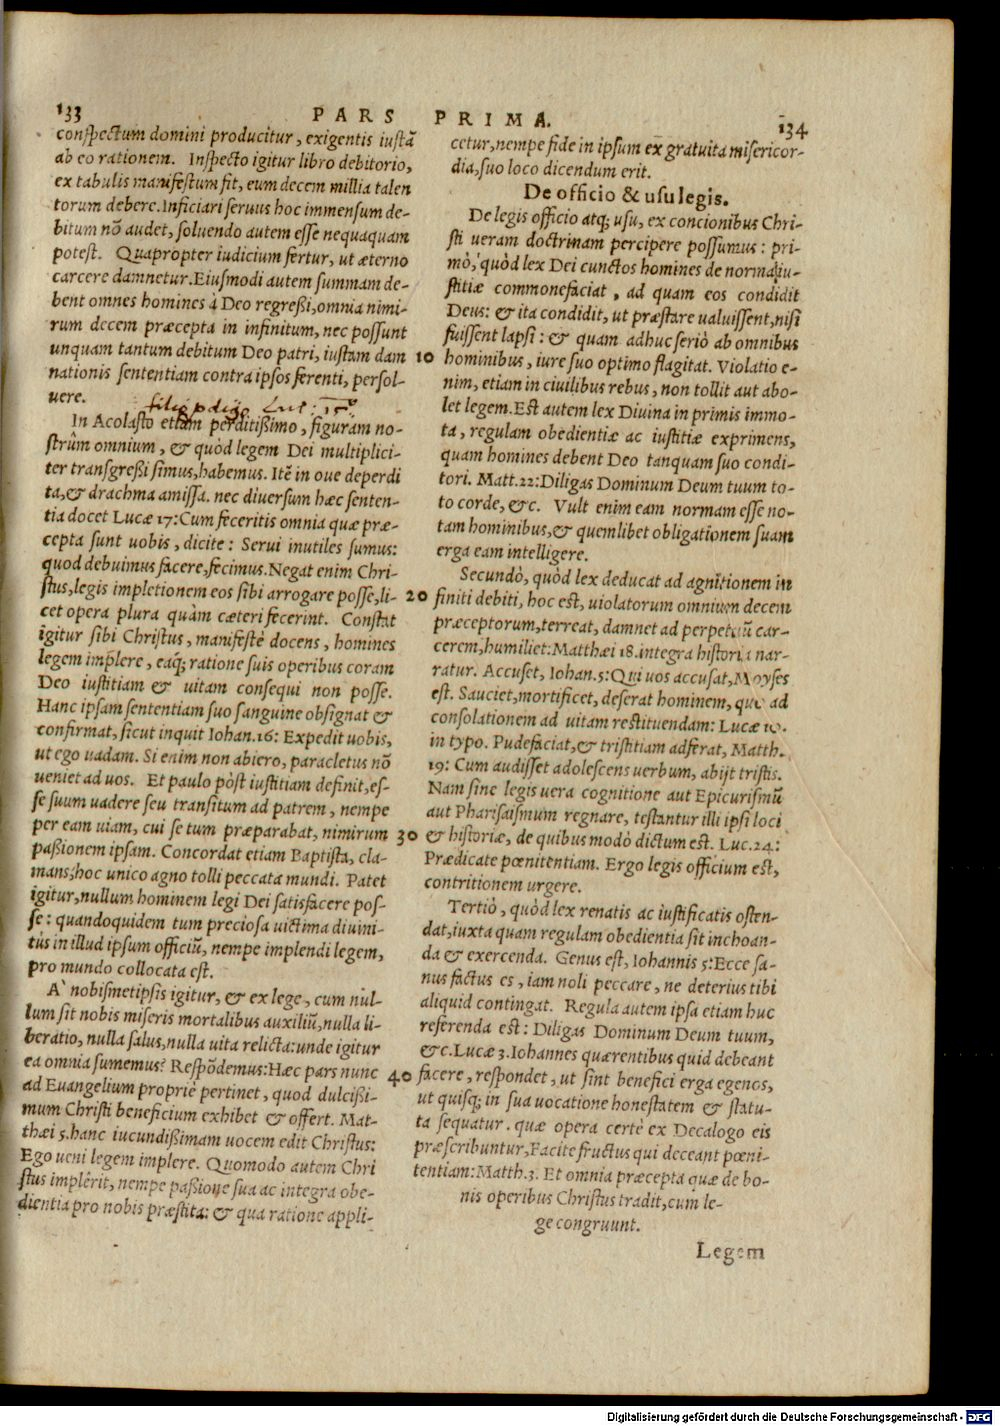 133 PARS PRIMA. 134
conſpectum domini producitur, exigentis iuſtã
ab eo rationem. Inſpecto igitur libro debitorio,
ex tabulis manifeſtum fit, eum decem millia talen
torum debere. Inficiari ſeruus hoc immenſum de-
bitum nõ audet, ſoluendo autem eſſe nequaquam
poteſt. Quapropter iudicium fertur, ut æterno
carcere damnetur. Eiuſmodi autem ſummam de-
bent omnes homines à Deo regreßi, omnia nimi-
rum decem præcepta in infinitum, nec poſſunt
unquam tantum debitum Deo patri, iuſtam dam
nationis ſententiam contra ipſos ferenti, perſol-
uere.
Luc: 15
In Acolaſto etiam perditißimo, figuram no-
ſtrûm omnium, & quòd legem Dei multiplici-
ter transgreßi ſimus, habemus. Itẽ in oue deperdi
ta, & drachma amiſſa. nec diuerſum hæc ſenten-
tia docet Lucæ 17: Cum feceritis omnia quæ præ-
cepta ſunt uobis, dicite: Serui inutiles ſumus:
quod debuimus facere, fecimus. Negat enim Chri-
ſtus, legis impletionem eos ſibi arrogare poſſe, li-
cet opera plura quàm cæteri fecerint. Conſtat
igitur ſibi Chriſtus, manifeſtè docens, homines
legem implere, eaq́; ratione ſuis operibus coram
Deo iuſtitiam & uitam conſequi non poſſe.
Hanc ipſam ſententiam ſuo ſanguine obſignat &
confirmat, ſicut inquit Iohan. 16: Expedit uobis,
ut ego uadam. Si enim non abiero, paracletus nõ
ueniet ad uos. Et paulo pòſt iuſtitiam definit, eſ-
ſe ſuum uadere ſeu tranſitum ad patrem, nempe
per eam uiam, cui ſe tum præparabat, nimirum
paßionem ipſam. Concordat etiam Baptiſta, cla-
mans, hoc unico agno tolli peccata mundi. Patet
igitur, nullum hominem legi Dei ſatisfacere poſ-
ſe: quandoquidem tum precioſa uictima diuini-
tùs in illud ipſum officiũ, nempe implendi legem,
pro mundo collocata eſt.
A` nobiſmetipſis igitur, & ex lege, cum nul-
lum ſit nobis miſeris mortalibus auxiliũ, nulla li-
beratio, nulla ſalus, nulla uita relicta: unde igitur
ea omnia ſumemus? Reſpõdemus: Hæc pars nunc
ad Euangelium propriè pertinet, quod dulcißi-
mum Chriſti beneficium exhibet & offert. Mat-
thæi 5. hanc iucundißimam uocem edit Chriſtus:
Ego ueni legem implere. Quomodo autem Chri
ſtus implêrit, nempe paßione ſua ac integra obe-
dientia pro nobis præſtita: & qua ratione appli-
cetur, nempe fide in ipſum ex gratuita miſericor-
dia, ſuo loco dicendum erit.
De officio & uſu legis.
De legis officio atq; uſu, ex concionibus Chri-
ſti ueram doctrinam percipere poſſumus: pri-
mò, quòd lex Dei cunctos homines de norma iu-
ſtitiæ commonefaciat, ad quam eos condidit
Deus: & ita condidit, ut præſtare ualuiſſent, niſi
fuiſſent lapſi: & quam adhuc ſeriò ab omnibus
10 hominibus, iure ſuo optimo flagitat. Violatio e-
nim, etiam in ciuilibus rebus, non tollit aut abo-
let legem. Eſt autem lex Diuina in primis immo-
ta, regulam obedientiæ ac iuſtitiæ exprimens,
quam homines debent Deo tanquam ſuo condi-
tori. Matt. 22: Diligas Dominum Deum tuum to-
to corde, &c. Vult enim eam normam eſſe no-
tam hominibus, & quemlibet obligationem ſuam
erga eam intelligere.
Secundò, quòd lex deducat ad agnitionem in
20 finiti debiti, hoc eſt, uiolatorum omnium decem
præceptorum, terreat, damnet ad perpetuũ car-
cerem, humiliet: Matthæi 18. integra hiſtoria nar-
ratur. Accuſet, Iohan. 5: Qui uos accuſat, Moyſes
eſt. Sauciet, mortificet, deſerat hominem, quo ad
conſolationem ad uitam reſtituendam: Lucæ 10.
in typo. Pudefaciat, & triſtitiam adferat, Matth.
19: Cum audiſſet adoleſcens uerbum, abijt triſtis.
Nam ſine legis uera cognitione aut Epicuriſmũ
aut Phariſaiſmum regnare, teſtantur illi ipſi loci
30 & hiſtoriæ, de quibus modò dictum eſt. Luc. 24:
Prædicate pœnitentiam. Ergo legis officium eſt,
contritionem urgere.
Tertiò, quòd lex renatis ac iuſtificatis oſten-
dat, iuxta quam regulam obedientia ſit inchoan-
da & exercenda. Genus eſt, Iohannis 5: Ecce ſa-
nus factus es, iam noli peccare, ne deterius tibi
aliquid contingat. Regula autem ipſa etiam huc
referenda eſt: Diligas Dominum Deum tuum,
&c. Lucæ 3. Iohannes quærentibus quid debeant
40 facere, reſpondet, ut ſint benefici erga egenos,
ut quiſq; in ſua uocatione honeſtatem & ſtatu-
ta ſequatur. quæ opera certè ex Decalogo eis
præſcribuntur, Facite fructus qui deceant pœni-
tentiam: Matth. 3. Et omnia præcepta quæ de bo-
nis operibus Chriſtus tradit, cum le-
ge congruunt.
Legem
Digitalisierung gefördert durch die Deutsche Forschungsgemeinschaft - DFG